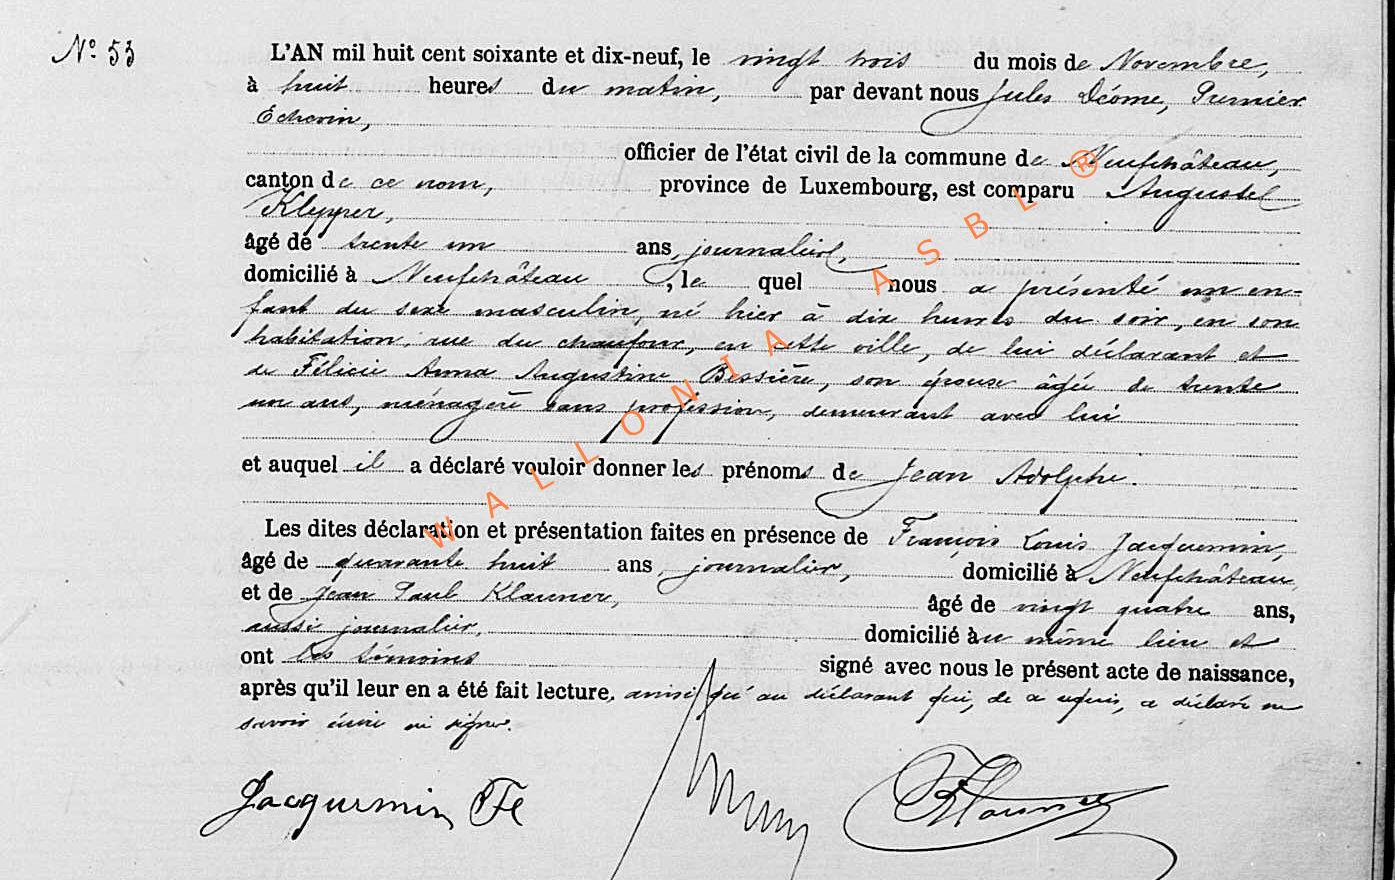 N° 53
L'AN mil huit cent soixante et dix-neuf, le vingt trois du mois de Novembre,
à huit heures du matin, par devant nous Jules Déome, Premier
Echevin,
officier de l'état civil de la commune de Neufchâteau,
canton de ce nom, province de Luxembourg, est comparu Auguste
Klepper,
âgé de trente un ans, journalier,
domicilié à Neufchâteau, le quel nous a présenté un en-
fant du sexe masculin, né hier à dix heures du soir, en son
habitation, rue du chaufour, en cette ville, de lui déclarant et
de Félicie Anna Augustine Bessière, son épouse âgée de trente
un ans, ménagère sans profession, demeurant avec lui
et auquel il a déclaré vouloir donner les prénoms de Jean Adolphe.
Les dites déclaration et présentation faites en présence de François Louis Jacquemin,
âgé de quarante huit ans, journalier, domicilié à Neufchâteau
et de Jean Paul Klauner, âgé de vingt quatre ans,
aussi journalier, domicilié au même lieu et
ont les témoins signé avec nous le présent acte de naissance,
après qu'il leur en a été fait lecture, ainsi qu'au déclarant qui, de ce requis, a déclaré ne
savoir écrire ni signer.
Jacquemin Fs
Klauner
WALLONIA ASBL ®